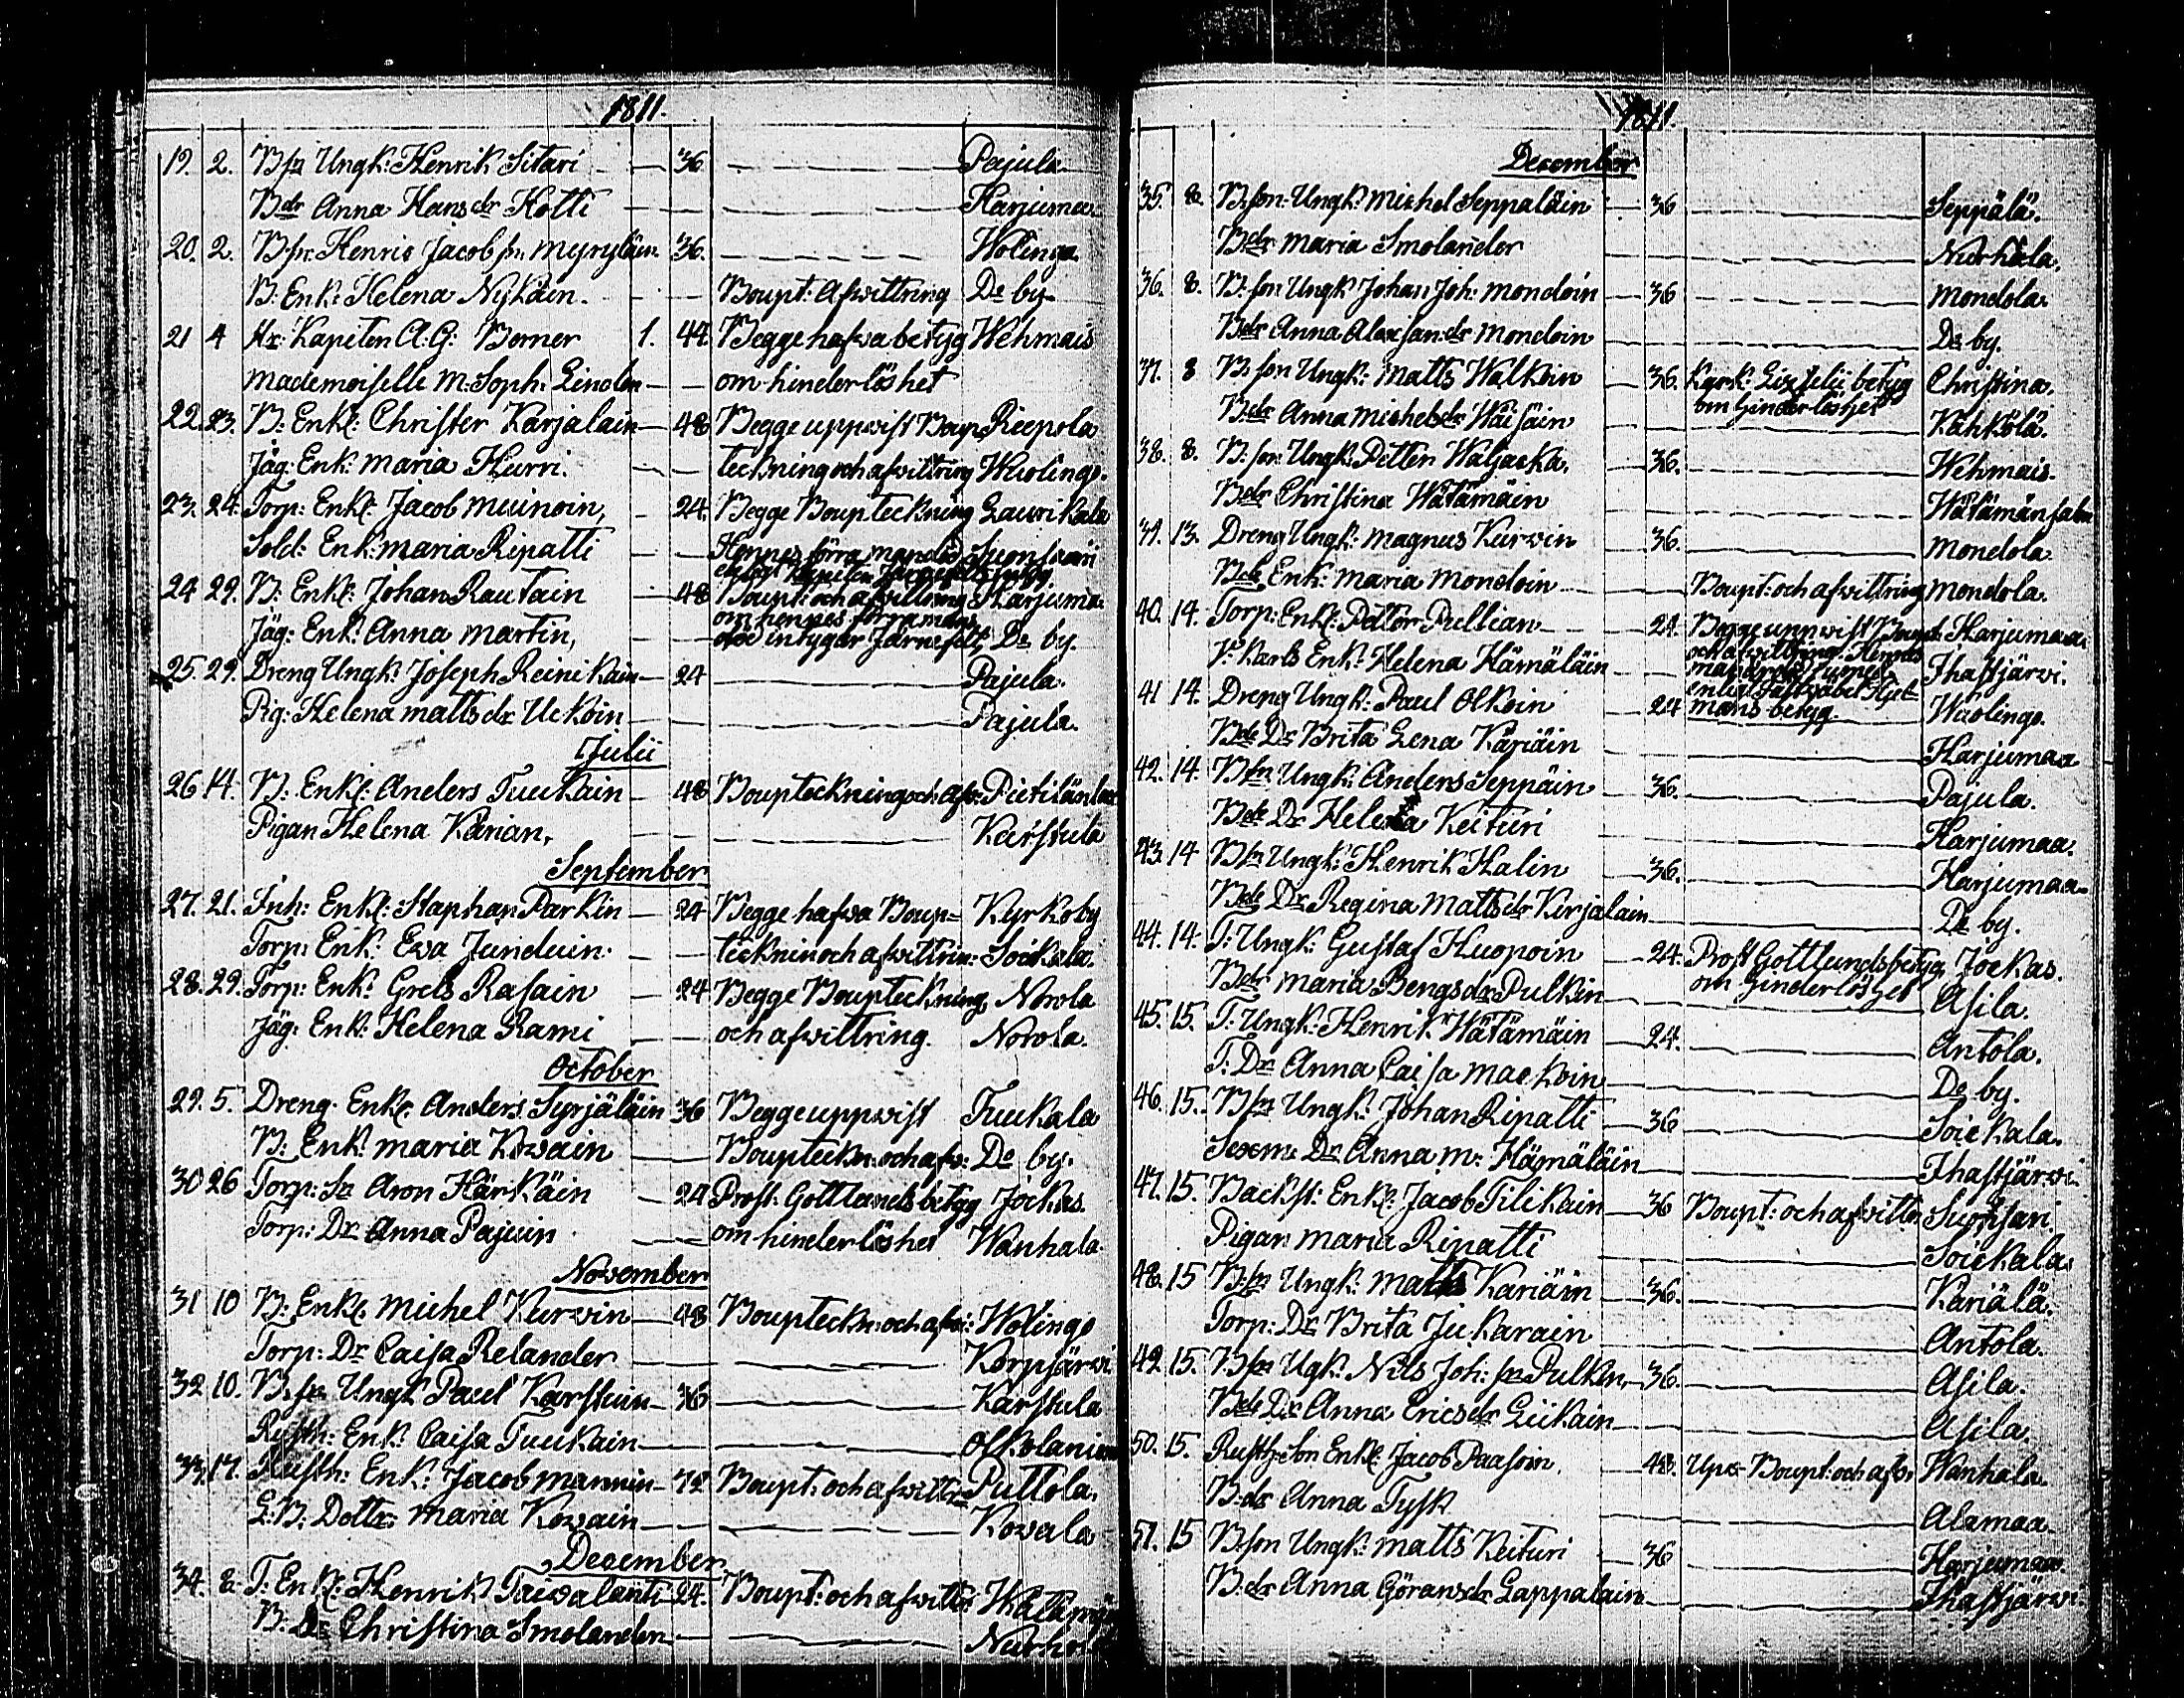 1811.
19. 2. B:sn Ungk: Henrik Sitari — 36 — Pajula
Bdr Anna Hans dr Hotti — Harjumaa
20. 2. B:sn Henric Jacob sn Myryläin 36. — Wolinga
B: Enk: Helena Nykäin. — Boupt: Afwittring De by
21 4 Hr: Kapiten A: G: Berner 1. 44. Begge hafwa betyg Wehmais
Mademoiselle M: Soph: — om hinderlöshet
22. 23. B: Enkl: Christer Karjalain — 48 Begge uppwist Boup Riepola
Jäg: Enk: Maria Hurri. — teckning och afwittring Wuolingo.
23. 24. Torp: Enkl: Jacob Muinoin, 24. Begge Boupteckning Laurikala
Sold: Enk: Maria Ripatti — Hennes förra mandöd Suonsaari
enligt Kapiten Järnefelts intyg.
24 29. B: Enkl: Johan Rautain — 48 Boupt: och afwittring Harjuma
Jäg: Enk: Anna Martin, — om hennes förra mans död intygar Järnefelt, De by.
25. 29. Dreng Ungk: Joseph Reinikain — 24 — Pajula.
Pig: Helena Matts dr Uckoin — Pajula.
Julii
26 14. B: Enkl: Anders Tuukain — 48 Boupteckning och afw: Pietilänlax
Pigan Helena Kärian, — Karstula
September
27. 21. Inh: Enkl: Staphan Parkin — 24 Begge hafwa Boup= Kyrkoby
Torp: Enk: Ewa Junduin. — tecknin och afwittrin: Soikala.
28. 29. Torp: Enk: Grels Rasain — 24 Begge Boupteckning Norola
Jäg: Enk: Helena Rami — och afwittring. Norola.
October
29. 5. Dreng. Enkl. Anders Syrjäläin 36 Begge uppwist Tuukala
B: Enk: Maria Kowain — Boupteckn: och afw: De by.
30 26 Torp: Sn Aron Härkäin — 24 Prost. Gottlunds betyg Jockas.
Torp: Dr Anna Pajuin — om hinderlöshet Wanhala
November
31 10 B: Enkl. Michel Kurwin — 48 Boupteckn: och afw: Wolingo
Torp: Dr Caisa Relander — Korpjärwi
32. 10. B: sn Ungk: Paul Karstuin — 36 — Karstula
Rusth: Enk: Caisa Tuukain — Olkolaniemi
33. 17. Rusth: Enk: Jacob Mannin — 48 Boupt: och afwittr= Puttola.
L: B: Dottr: Maria Kowain — Kowala
December
34. 8. T: Enkl: Henrik Taiwalanti 24. Boupt: och afwittr:
B. Dr Christina Smolander —
1811.
December
35. 8. B: son Ungk: Michel Seppäläin — 36 — Seppälä.
Bdr Maria Smolander — Nurhola.
36. 8. B: son Ungk Johan Joh: Mondoin — 36 — Mondola.
Bdr Anna Alexsan: dr Mondoin — De by.
37. 8 B: son Ungk: Matts Walkoin — 36. betyg om hinderlöshet Christina.
B: dr Anna Michels dr Wäisäin — Kähkölä.
38. 8. B: son Ungk: Petter Waljacka, — 36. — Wehmais.
Bdr Christina Wätämäin —
39. 13. Dreng Ungk: Magnus Kurwin — 36. — Mondola.
Bde Enk: Maria Mondoin — Boupt: och afwittring Mondola.
40. 14. Torp: Enkl: Petter Pullian — 24. Begge uppwist Boupt: Harjumaa.
Helena Hämäläin — och afwittring. Hennes Ihastjärwi.
41 14. Dreng Ungk: Paul Olkoin — 24 mans betyg. Wuolingo.
Bde Dr Brita Lena Käriäin — Harjumaa
42. 14. Bsn Ungk: Anders Seppäin — 36. — Pajula.
Bde Dr Helena Keituri — Harjumaa.
43. 14 Bsn Ungk: Henrik Halin — 36. — Harjumaa.
Bde Dr Regina Matts dr Kirjalain — De by.
44. 14. T: Ungk: Gustaf Huopoin — 24. Prost Gottlunds betyg Jockas.
Bdr Maria Bengs dr Pulkin — om hinderlöshet Asila.
45. 15. T: Ungk: Henrik Wätämäin — 24. — Antola.
T: Dr Anna Caisa Mackoin — De by.
46. 15. Bsn Ungk: Johan Ripatti — 36 — Soickala.
Sexm: Dr Anna M: Hämäläin — Ihastjärwi
47. 15. Backst: Enkl: Jacob Tilikain — 36 Boupt: och afwittr.
Pigan Maria Ripatti — Soickala.
48. 15 B: sn Ungk: Matts Kariäin — 36. — Kariälä.
Torp: Dr Brita Jukarain — Antola.
49. 15. B: sn Ugk: Nils Joh: sn Pulkin, — 36. — Asila.
Bde Dr Anna Erics dr Liikain — Asila.
50. 15. Rusth: Son Enkl: Jacob Paasoin, — 48. Upw: Boupt: och afw: Wanhala.
B: dr Anna Tysk — Alamaa.
51. 15 B: son Ungk: Matts Keituri — 36 — Harjumaa.
B: dr Anna Görans dr Lappalain — Ihastjärwi